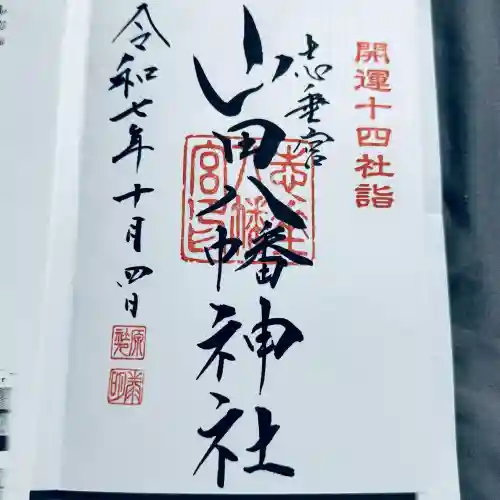 開運十四社詣
志垂宮
山田八幡神社
令和七年十月四日